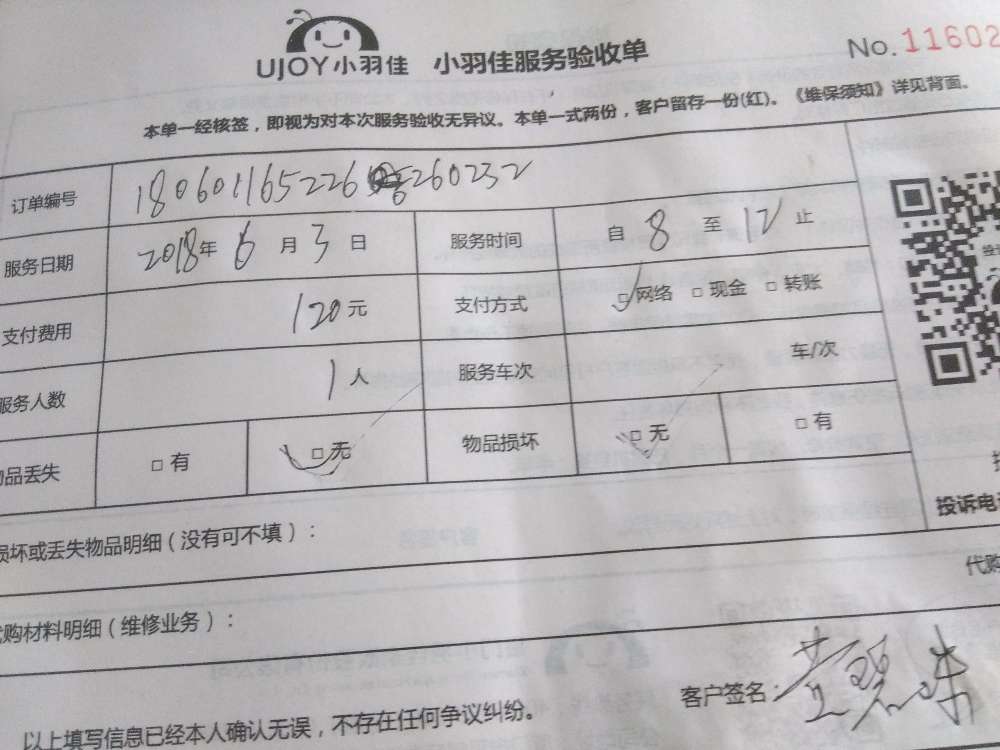 UJOY小羽佳 小羽佳服务验收单 No.11602
本单一经核签，即视为对本次服务验收无异议。本单一式两份，客户留存一份(红)。《维保须知》详见背面。
订单编号 180601165226 260232
服务日期 2018年 6 月 3 日 服务时间 自 8 至 12 止
支付费用 120元 支付方式 □网络 □现金 □转账
服务人数 1人 服务车次 车/次
物品丢失 □有 □无 物品损坏 □无 □有
损坏或丢失物品明细（没有可不填）：
投诉电
代购
代购材料明细（维修业务）：
客户签名：
以上填写信息已经本人确认无误，不存在任何争议纠纷。